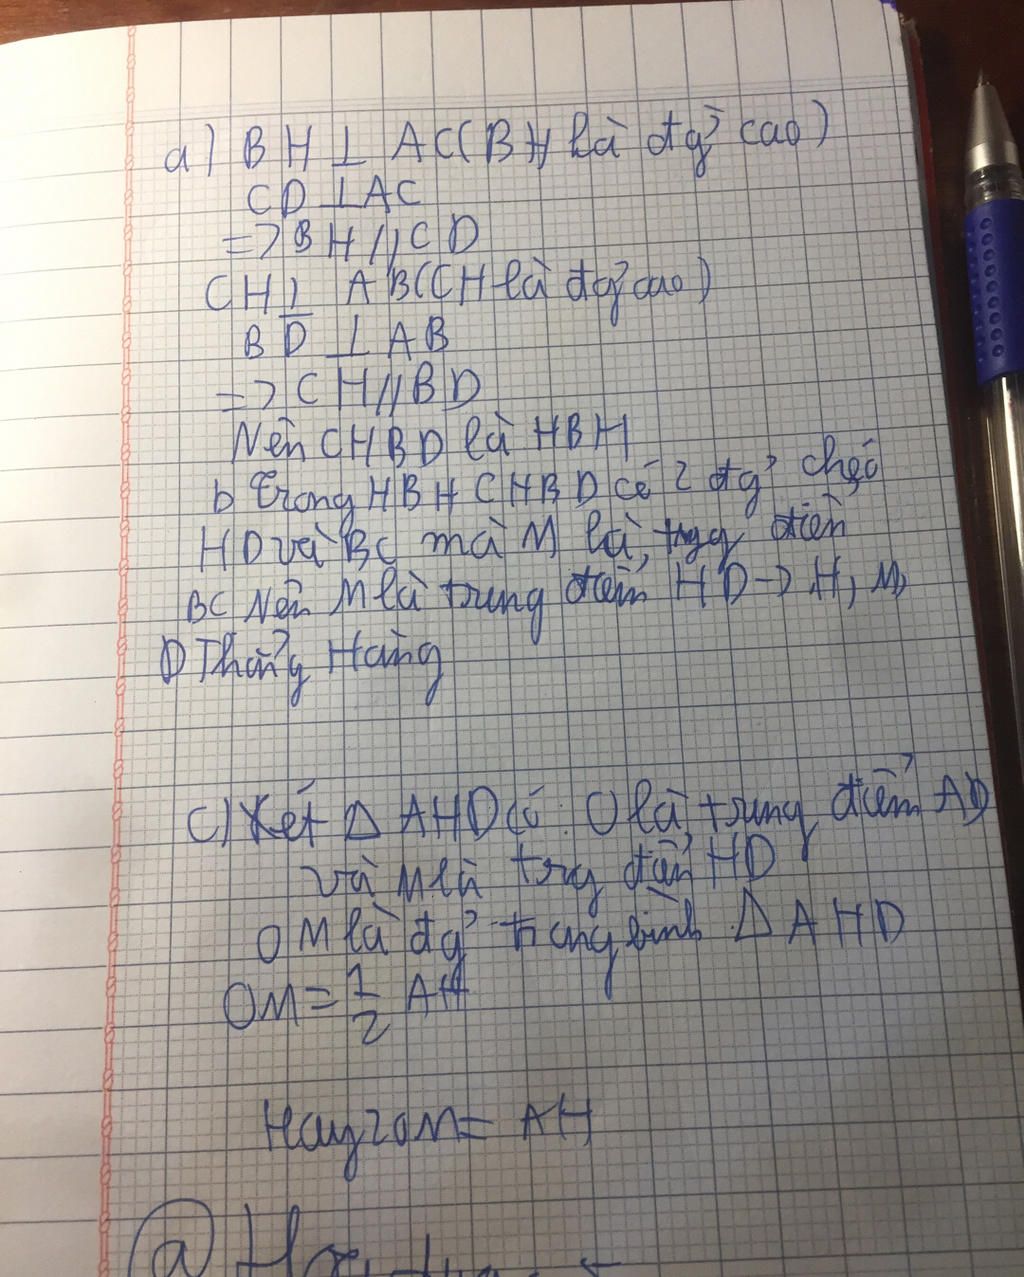 a) BH ⊥ AC (BH là đg̉ cao)
CD ⊥ AC
=> BH // CD
CH ⊥ AB (CH là đg̉ cao)
BD ⊥ AB
=> CH // BD
Nên CHBD là HBH
b Trong HBH CHBD có 2 đg̉ chéo
HD và BC mà M là trg điểm
BC Nên M là trung điểm HD -> H, M,
D Thẳng Hàng
c) Xét Δ AHD có: O là trung điểm AD
và M là trg điểm HD
OM là đg̉ trung bình Δ AHD
OM = 1/2 AH
Hay 2OM = AH
a)